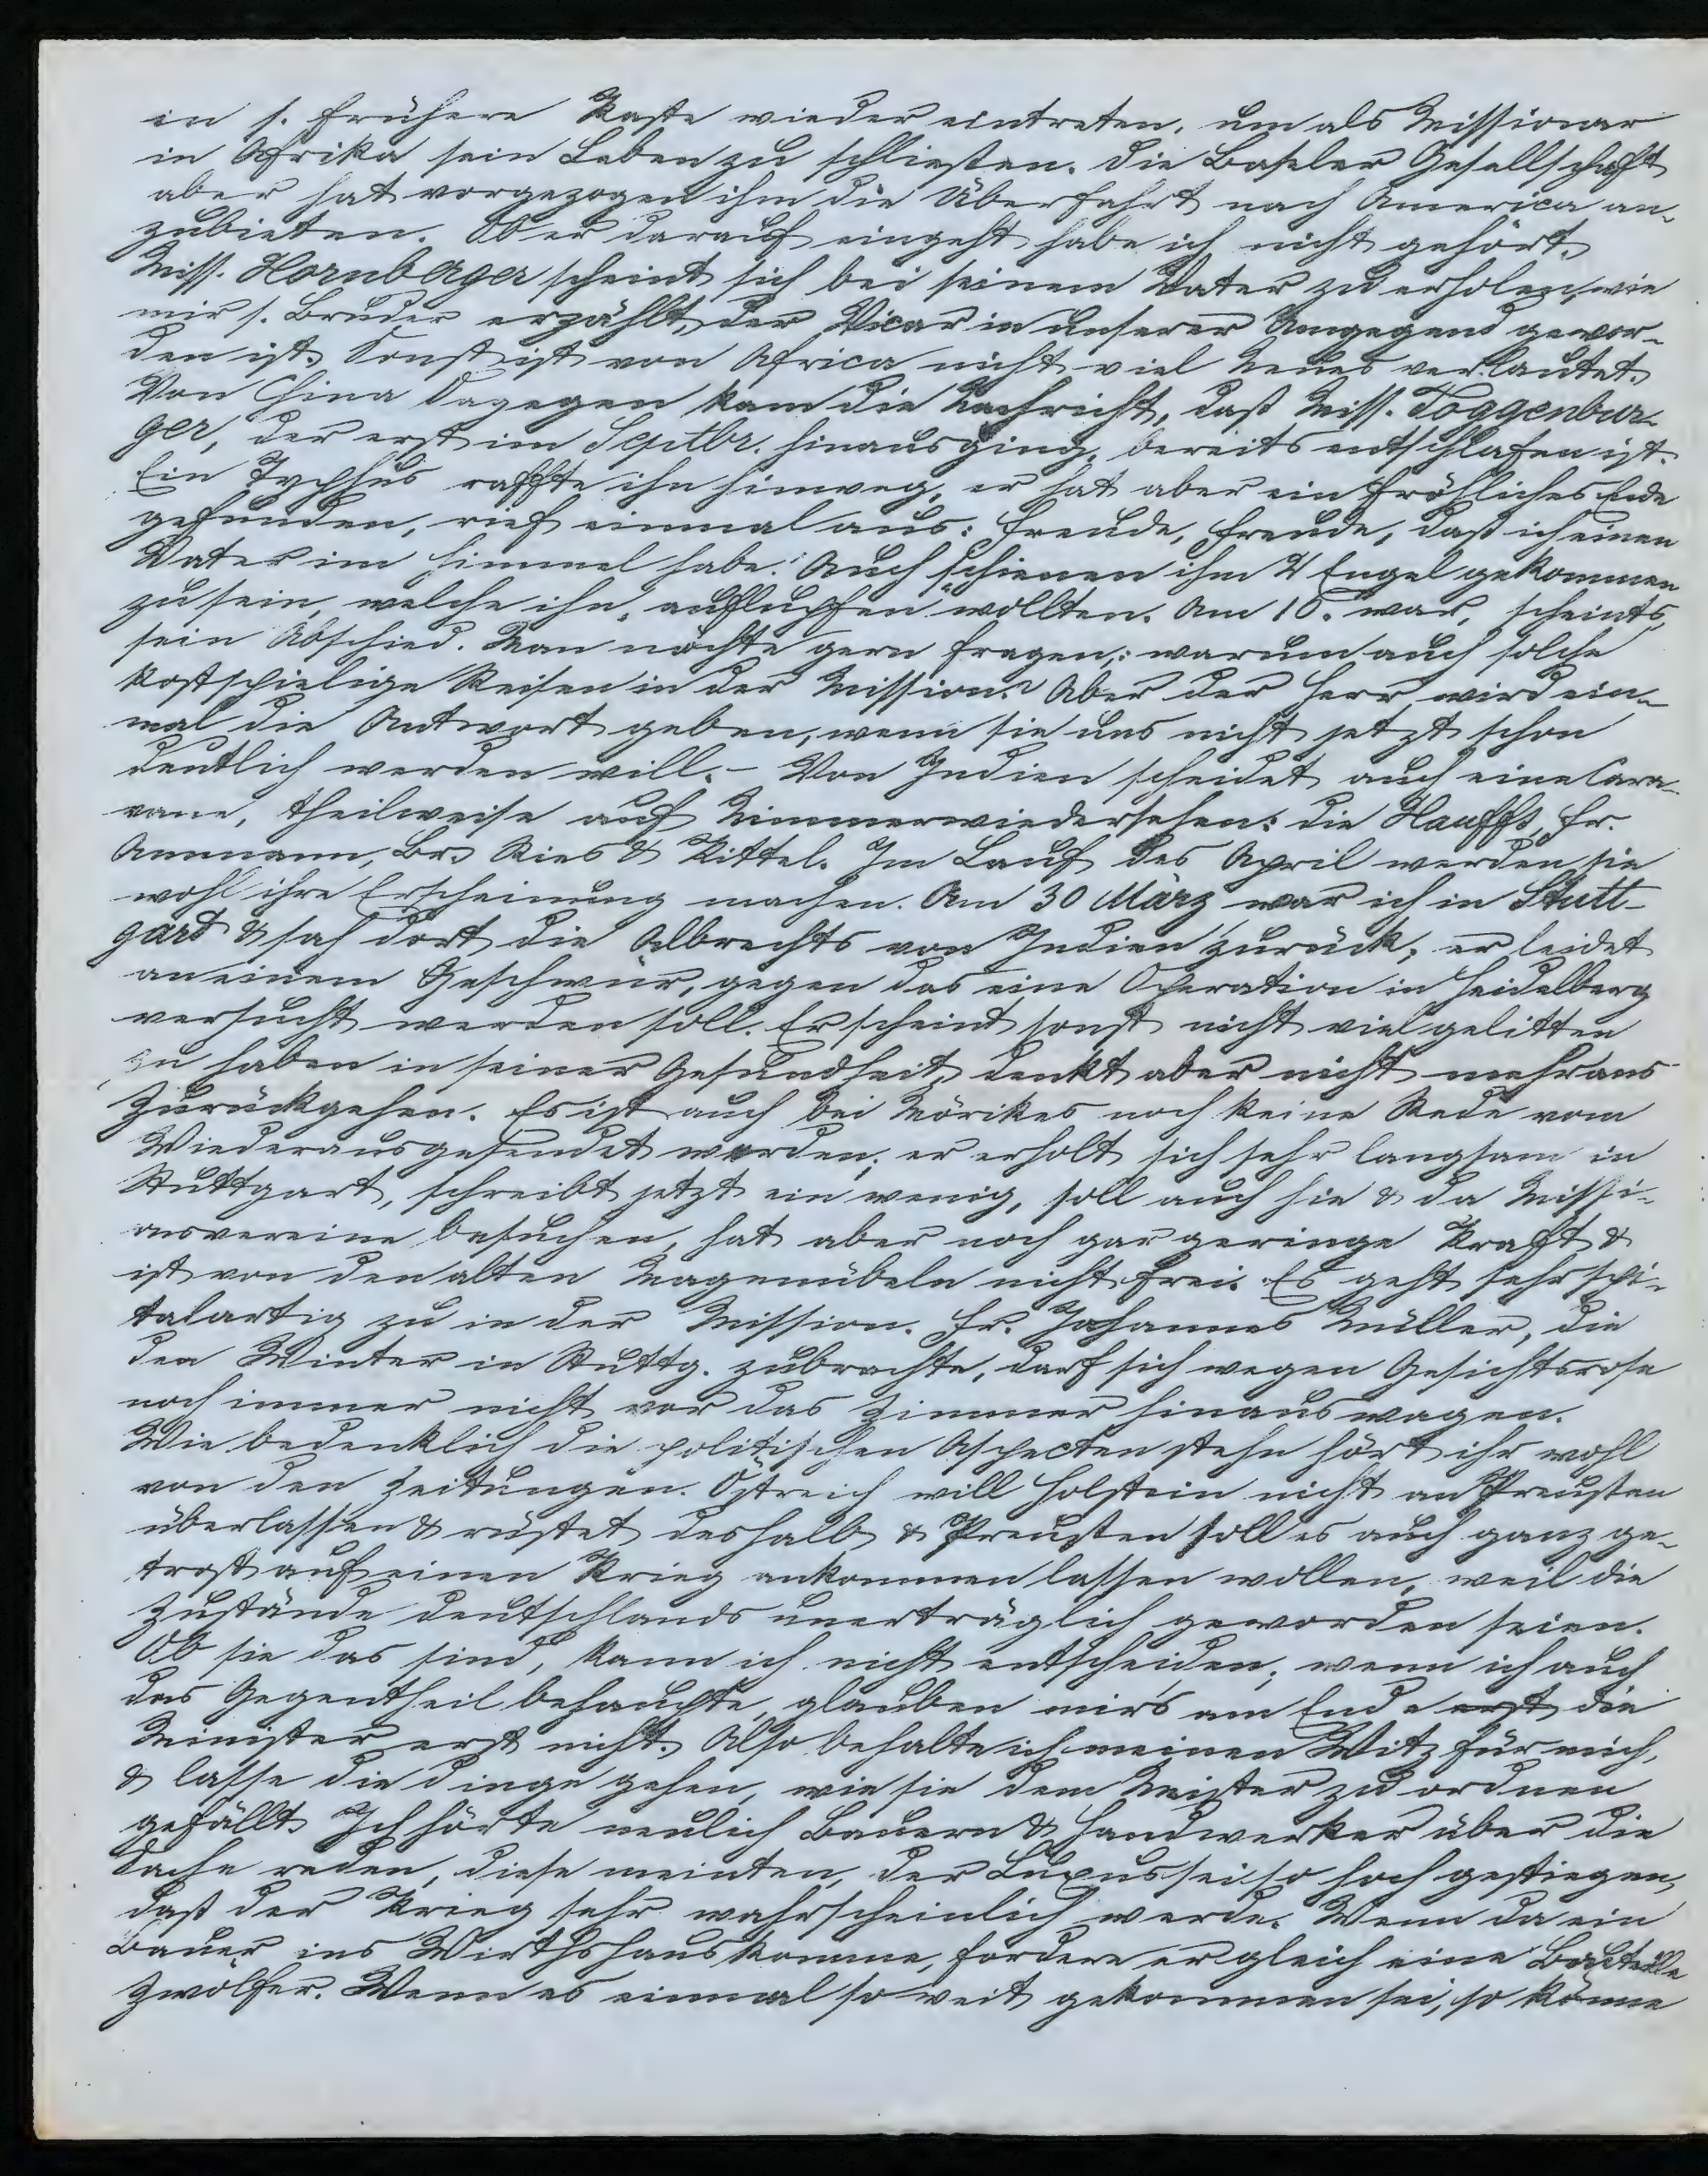 in s. frühere Kaste wieder eintreten, um als Missionar
in Afrika sein Leben zu schließen. Die Basler Gesellschaft
aber hat vorgezogen ihm die Überfahrt nach America an-
zubieten. Ob er darauf eingeht habe ich nicht gehört.
Miss. Hornberger scheint sich bei seinem Vater zu erholen, wie
mir s. Bruder erzählt, der Vicar in unserer Umgegend gewor-
den ist. Sonst ist von Africa nicht viel Neues verlautet.
Von China dagegen kam die Nachricht, daß Miss. Toggenbur-
ger, der erst im Septbr. hinausging, bereits entschlafen ist.
Ein Typhus raffte ihn hinweg, er hat aber ein fröhliches Ende
gefunden, rief einmal aus: Freude, Freude, daß ich einen
Vater im Himmel habe! Auch schienen ihm 2 Engel gekommen
zu sein, welche ihn „auflupfen" wollten. Am 10. war, scheints,
sein Abschied. Man möchte gern fragen: warum auch solche
kostspielige Reisen in der Mission? Aber der Herr wird ein-
mal die Antwort geben, wenn sie uns nicht jetzt schon
deutlich werden will. - Von Indien scheidet auch eine Cara-
vane, theilweise auf Nimmerwiedersehen: die Hauffs, Fr.
Ammann, Br. Ries & Kittel. Im Lauf des April werden sie
wohl ihre Erscheinung machen. Am 30 März war ich in Stutt-
gard & sah dort die Albrechts von Indien zurück, er leidet
an einem Geschwür, gegen das eine Operation in Heidelberg
versucht werden soll. Er scheint sonst nicht viel gelitten
zu haben in seiner Gesundheit, denkt aber nicht mehr ans
Zurückgehen. Es ist auch bei Mörikes noch keine Rede vom
Wiederausgesendet werden; er erholt sich sehr langsam in
Stuttgart, schreibt jetzt ein wenig, soll auch hie & da Missi-
onsvereine besuchen, hat aber noch gar geringe Kraft &
ist von den alten Magenübeln nicht frei. Es geht sehr spi-
talartig zu in der Mission. Fr. Johannes Müller, die
den Winter in Stuttg. zubrachte, darf sich wegen Gesichtsrose
noch immer nicht vor das Zimmer hinauswagen.
Wie bedenklich die politischen Aspecten stehn hört ihr wohl
von den Zeitungen. Östreich will Holstein nicht an Preußen
überlassen & rüstet deshalb & Preußen soll es auch ganz ge-
trost auf einen Krieg ankommen lassen wollen, weil die
Zustände Deutschlands unerträglich geworden seien.
Ob sie das sind, kann ich nicht entscheiden; wenn ich auch
das Gegentheil behaupte, glauben mir's am Ende erst die
Minister erst nicht. Also behalte ich meinen Witz für mich,
& lasse die Dinge gehen, wie sie dem Meister zu ordnen
gefällt. Ich hörte neulich Bauern & Handwerker über die
Sache reden, diese meinten, der Luxus sei so hoch gestiegen,
daß der Krieg sehr wahrscheinlich werde. Wenn da ein
Bauer ins Wirthshaus komme, fordere er gleich eine Bouteille
Zwölfer. Wenn es einmal so weit gekommen sei, so könne